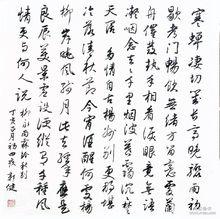 寒蝉凄切对长亭晚骤雨初
歇都门畅饮无绪方留恋处兰
舟催发执手相看泪眼竟无语
凝咽念去去千里烟波暮霭沉沉楚
天阔多情自古伤离别更那堪
冷落清秋节今宵酒醒何处杨
柳岸晓风残月此去经年应是
良辰美景虚设便纵有千种风
情更与何人说 柳永雨霖铃
丁亥